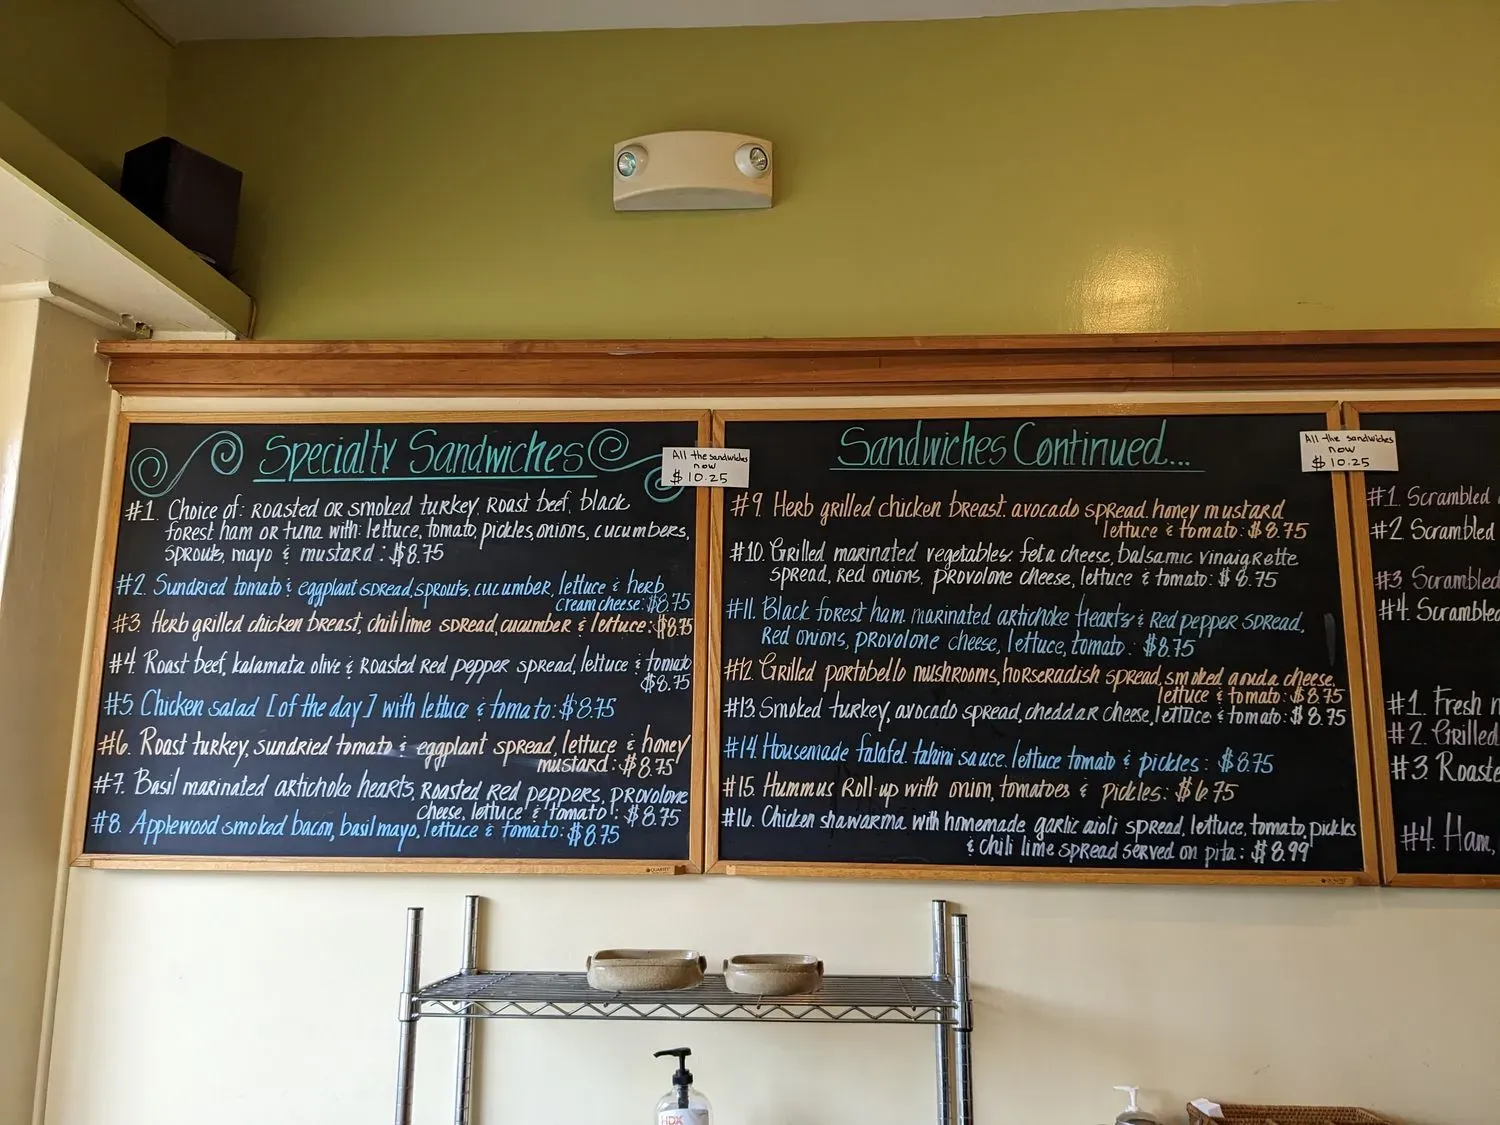 Specialty Sandwiches
All the sandwiches
now
$10.25
#1. Choice of: Roasted or smoked turkey, Roast beef, black
forest ham or tuna with: lettuce, tomato, pickles, onions, cucumbers,
sprouts, mayo & mustard: $8.75
#2. Sundried tomato & eggplant spread, sprouts, cucumber, lettuce & herb
cream cheese: $8.75
#3. Herb grilled chicken breast, chili lime spread, cucumber & lettuce: $8.75
#4. Roast beef, kalamata olive & Roasted Red pepper spread, lettuce & tomato
$8.75
#5. Chicken salad [of the day] with lettuce & tomato: $8.75
#6. Roast turkey, sundried tomato & eggplant spread, lettuce & honey
mustard: $8.75
#7. Basil marinated artichoke hearts, Roasted Red peppers, provolone
cheese, lettuce & tomato: $8.75
#8. Applewood smoked bacon, basil mayo, lettuce & tomato: $8.75
Sandwiches Continued...
All the sandwiches
now
$10.25
#9. Herb grilled chicken breast, avocado spread, honey mustard
lettuce & tomato: $8.75
#10. Grilled marinated vegetables, feta cheese, balsamic vinaigrette
spread, Red onions, provolone cheese, lettuce & tomato: $8.75
#11. Black forest ham, marinated artichoke Hearts & Red pepper spread,
Red onions, provolone cheese, lettuce, tomato: $8.75
#12. Grilled portobello mushrooms, horseradish spread, smoked gouda cheese,
lettuce & tomato: $8.75
#13. Smoked turkey, avocado spread, cheddar cheese, lettuce & tomato: $8.75
#14. Housemade falafel, tahini sauce, lettuce tomato & pickles: $8.75
#15. Hummus Roll-up with onion, tomatoes & pickles: $6.75
#16. Chicken shawarma with homemade garlic aioli spread, lettuce, tomato, pickles
& chili lime spread served on pita: $8.99
#1. Scrambled
#2 Scrambled
#3 Scrambled
#4. Scrambled
#1. Fresh
#2. Grilled
#3. Roaste
#4. Ham,
HDX